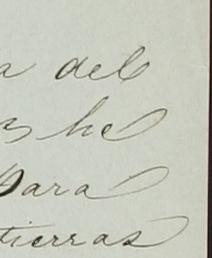 a del
he
para
tierras